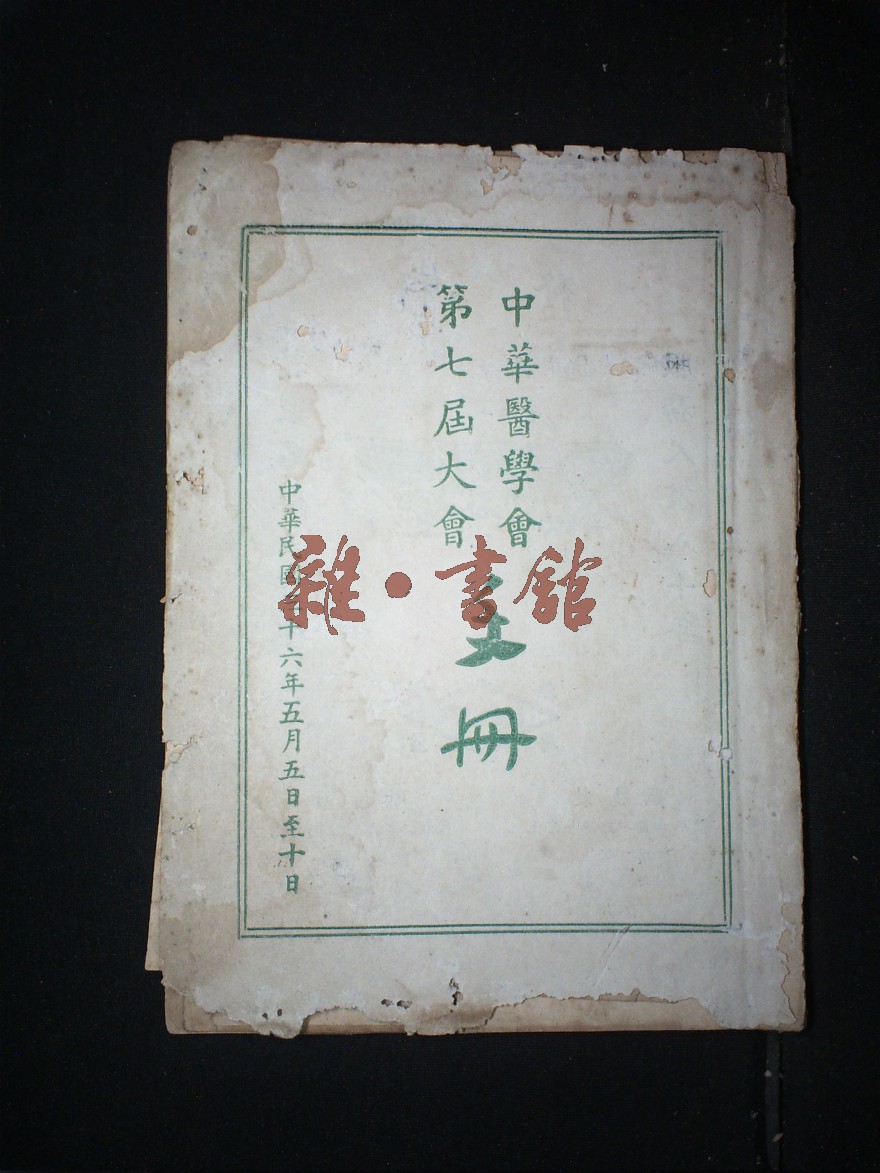 中華醫學會
第七屆大會
冊
中華民國 十六年五月五日至十日
雜·書館